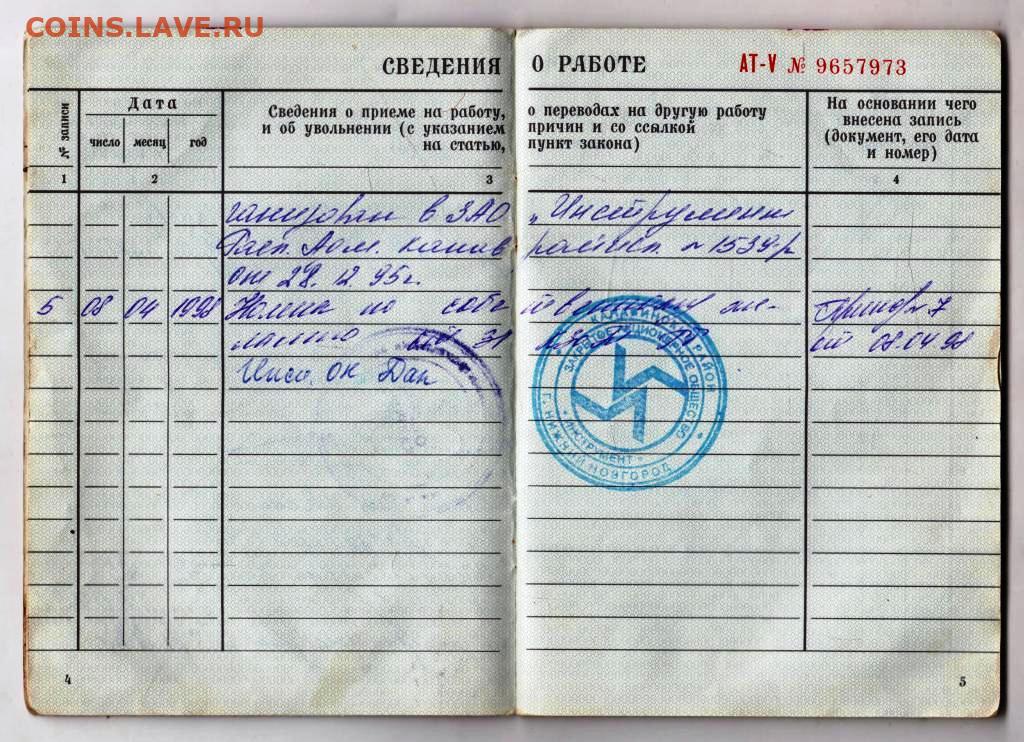 COINS.LAVE.RU
СВЕДЕНИЯ О РАБОТЕ АТ-V № 9657973
№ записи
Дата
число месяц год
Сведения о приеме на работу, о переводах на другую работу
и об увольнении (с указанием причин и со ссылкой
на статью, пункт закона)
На основании чего
внесена запись
(документ, его дата
и номер)
1 2 3 4
в ЗАО „Инструмент
Расп. Адм. № 1539-р
от 28.12.95г.
5 08 04 1998 по
31 от 08.04.98
Инсп ОК
КАНАВИНСКИЙ РАЙОН
ЗАКРЫТОЕ АКЦИОНЕРНОЕ ОБЩЕСТВО
ИНСТРУМЕНТ
Г. НИЖНИЙ НОВГОРОД
4 5